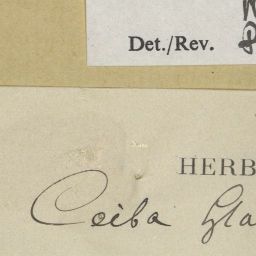 Det./Rev.
HERB
Ceiba Gla